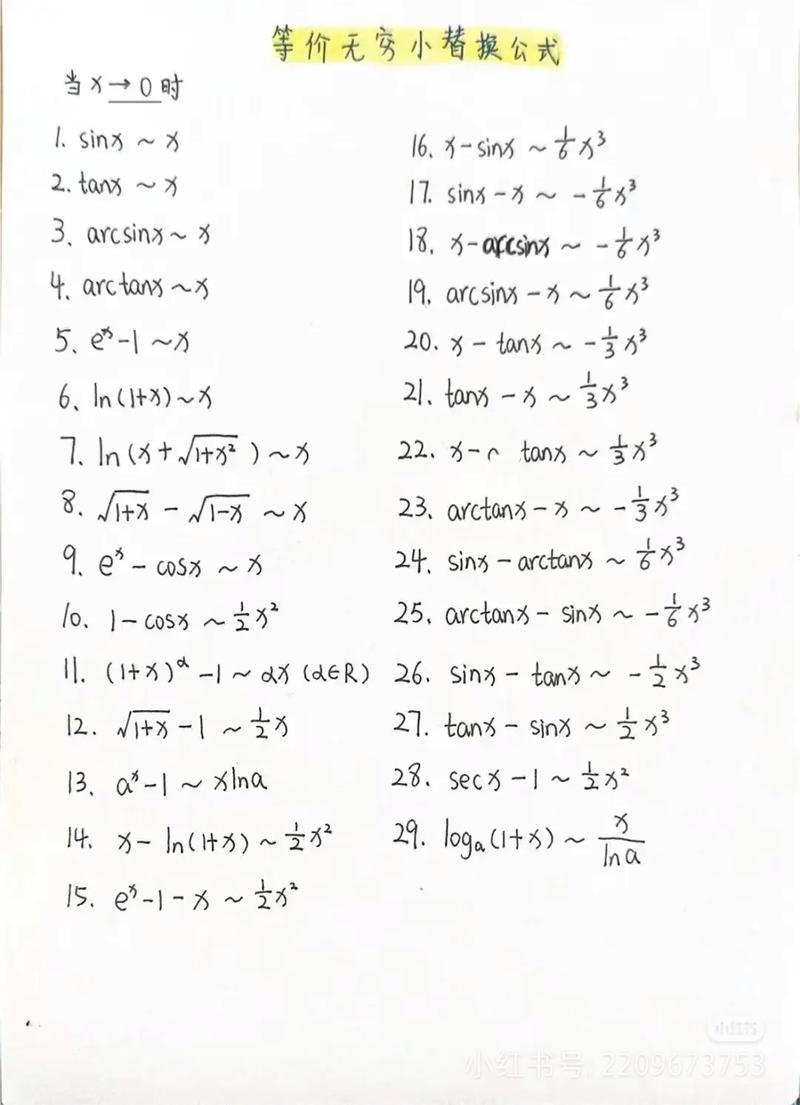 等价无穷小替换公式
当 x → 0 时
1. sinx ~ x
2. tanx ~ x
3、arcsinx ~ x
4、arctanx ~ x
5、eˣ-1 ~ x
6、ln(1+x) ~ x
7. ln(x+√(1+x²)) ~ x
8. √(1+x) - √(1-x) ~ x
9. eˣ - cosx ~ x
10. 1 - cosx ~ ½x²
11. (1+x)^α - 1 ~ αx (α∈R)
12. √(1+x) - 1 ~ ½x
13、aˣ-1 ~ xlna
14. x - ln(1+x) ~ ½x²
15. eˣ-1-x ~ ½x²
16、x-sinx ~ 1/6 x³
17. sinx-x ~ -1/6 x³
18、x-arcsinx ~ -1/6 x³
19. arcsinx-x ~ 1/6 x³
20. x - tanx ~ -1/3 x³
21. tanx - x ~ 1/3 x³
22. x- tanx ~ 1/3 x³
23. arctanx - x ~ -1/3 x³
24. sinx - arctanx ~ 1/6 x³
25. arctanx - sinx ~ -1/6 x³
26. sinx - tanx ~ -1/2 x³
27. tanx - sinx ~ 1/2 x³
28. secx - 1 ~ ½x²
29. logₐ(1+x) ~ x/lna
小红书
小红书号: 2209673753